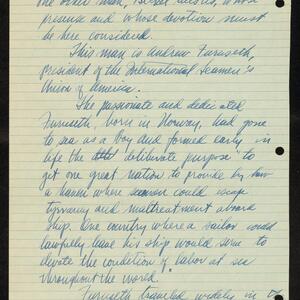 presence and whose devotion must
be here considered.
This man is Andrew Furuseth,
president of the International Seamen's
Union of America.
The passionate and dedicated
Furuseth, born in Norway, had gone
to sea as a boy and formed early in
life the deliberate purpose to
get one great nation to provide by law
a haven where seamen could escape
tyranny and maltreatment aboard
ship. One country where a sailor could
lawfully leave his ship would serve to
elevate the condition of labor at sea
throughout the world.
Furuseth traveled widely in